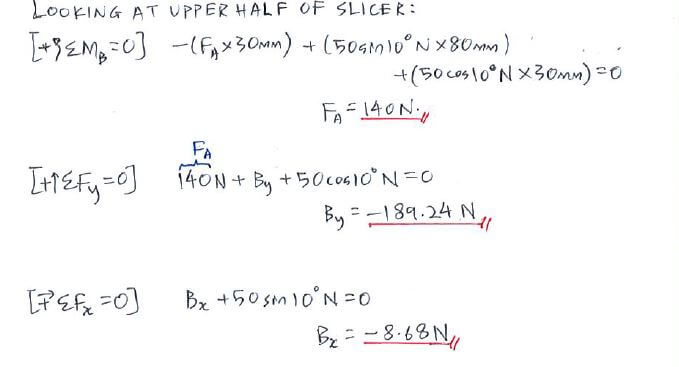 LOOKING AT UPPER HALF OF SLICER:
[+↺ΣM_B=0] -(F_A×30mm) + (50sin10°N×80mm)
+(50cos10°N×30mm)=0
F_A=140N.
F_A
[+↑ΣF_y=0] 140N + B_y + 50cos10°N=0
B_y = -189.24 N
[→+ΣF_x=0] B_x + 50sin10°N=0
B_x = -8.68N